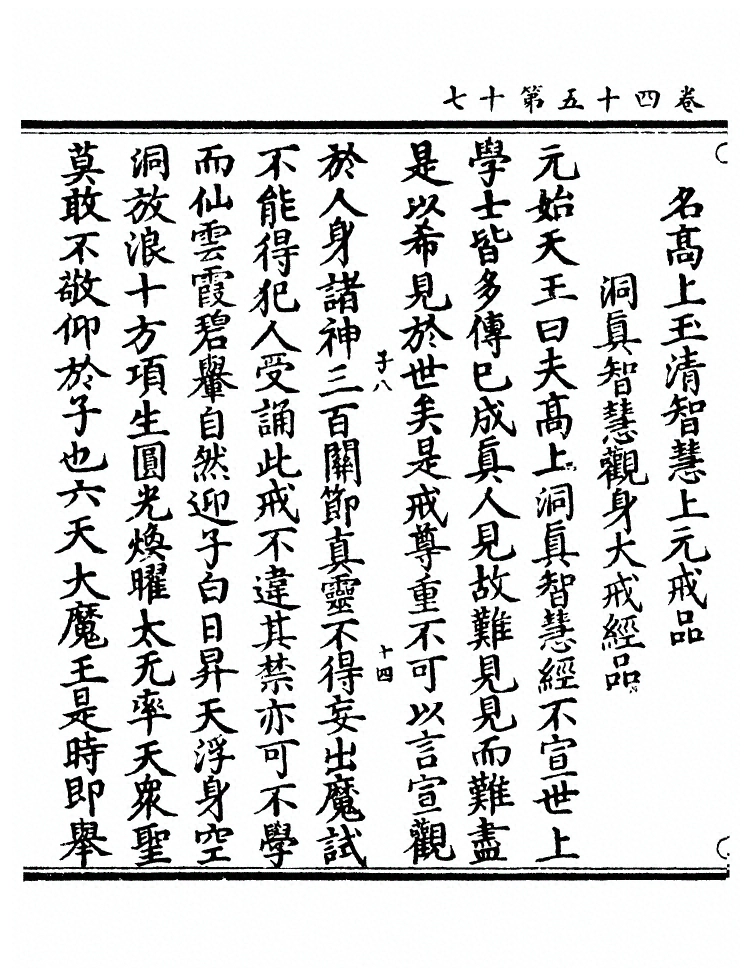 卷四十五第十七
名髙上玉清智慧上元戒品
洞眞智慧觀身大戒經品
元始天王曰夫髙上洞眞智慧經不宣世上
學士皆多傳已成眞人見故難見見而難盡
是以希見於世矣是戒尊重不可以言宣觀
子八
十四
於人身諸神三百關節真靈不得妄出魔試
不能得犯人受誦此戒不違其禁亦可不學
而仙雲霞碧轝自然迎子白日昇天浮身空
洞放浪十方項生圓光煥曜太无率天衆聖
莫敢不敬仰於子也六天大魔王是時即舉